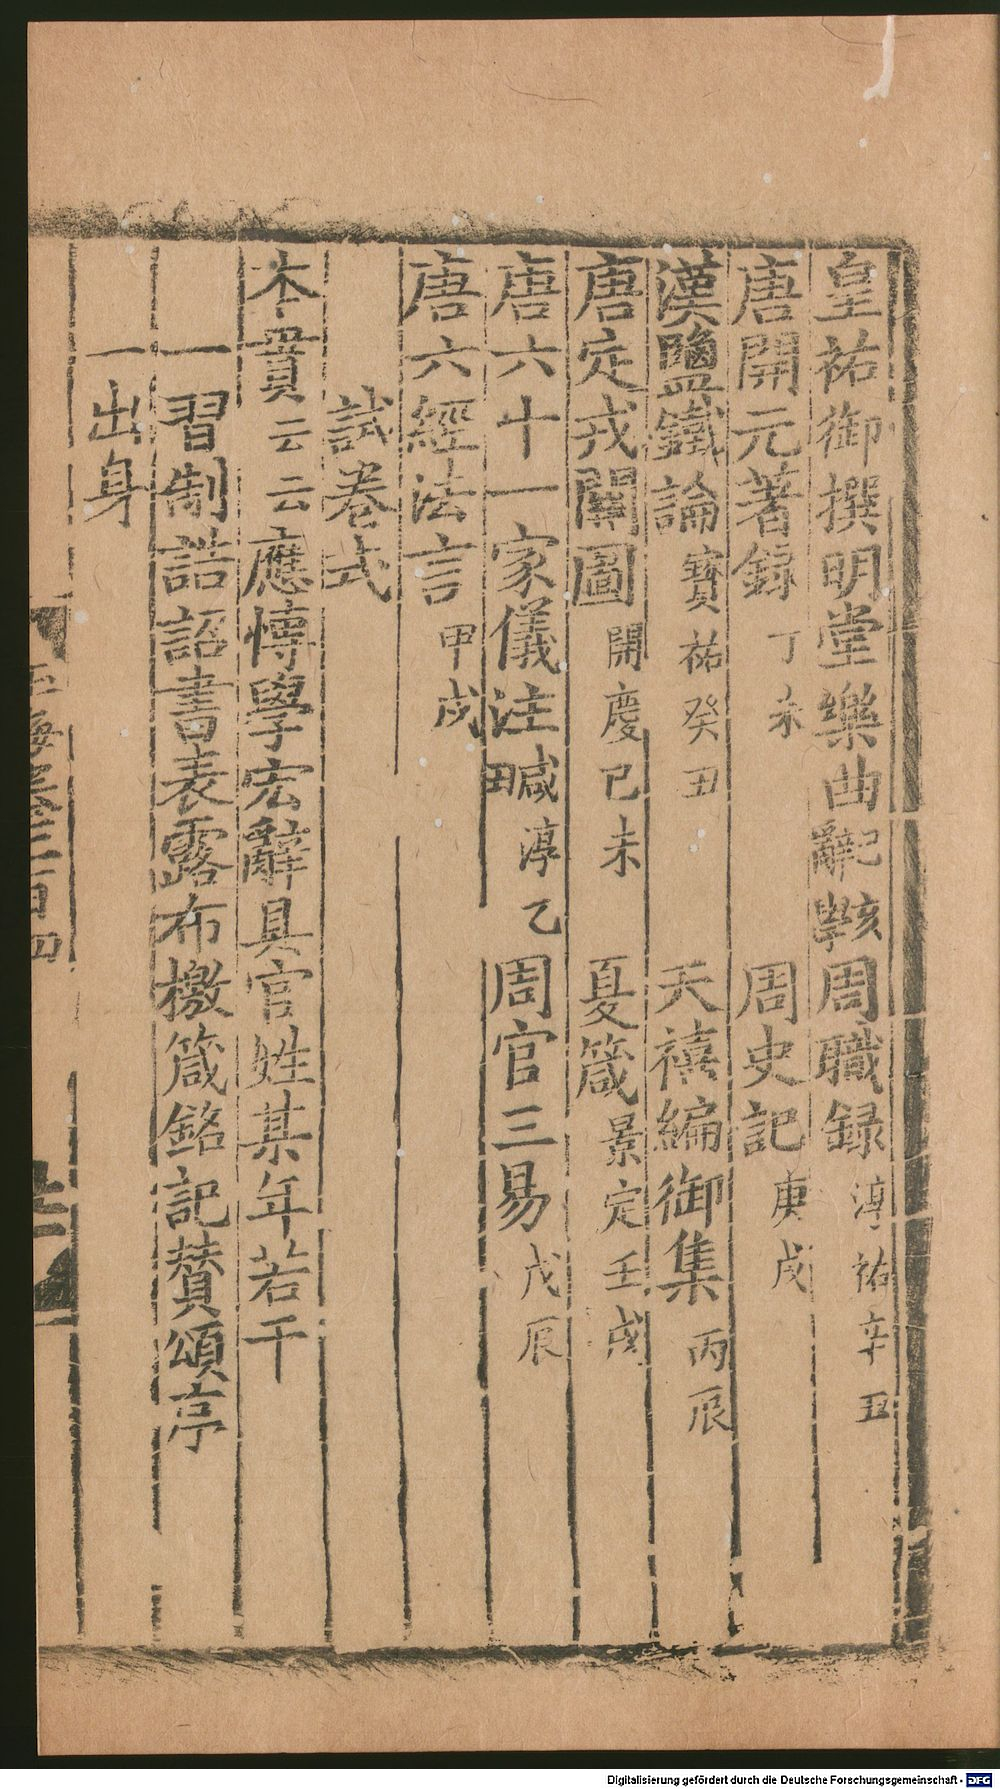 皇祐御撰明堂樂曲 周職録淳祐辛丑
唐開元著録丁未 周史記庚戌
漢鹽鐵論寶祐癸丑 天禧編御集丙辰
唐定戎闢圖開慶己未 夏箴景定壬戌
唐六十一家儀注咸淳乙 周官三易戊辰
唐六經法言甲戌
試卷式
本貫云云應博學宏辭具官姓某年若干
一習制誥詔書表露布檄箴銘記賛頌亭
一出身
玉海卷二百四
Digitalisierung gefördert durch die Deutsche Forschungsgemeinschaft - DFG